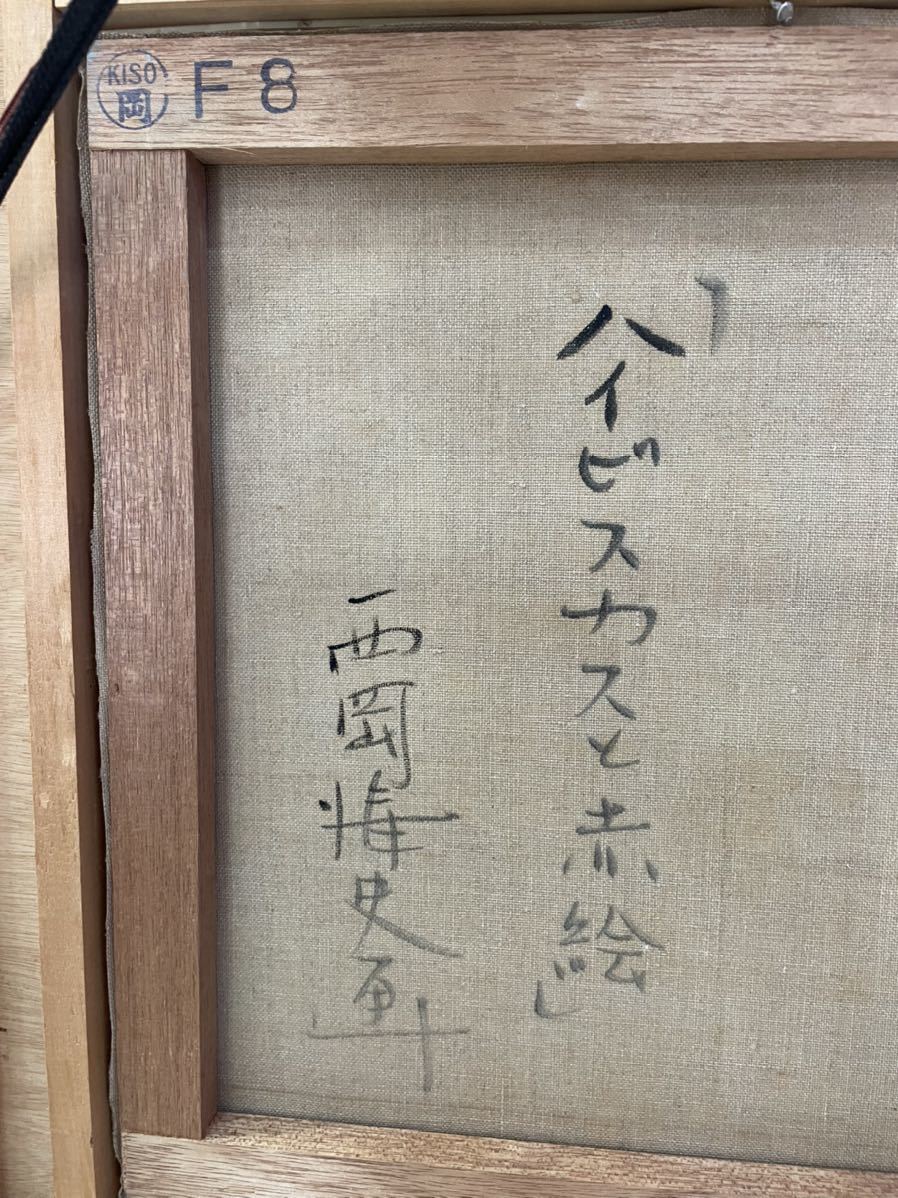 KISO
岡
F8
「ハイビスカスと赤絵」
西岡 史画